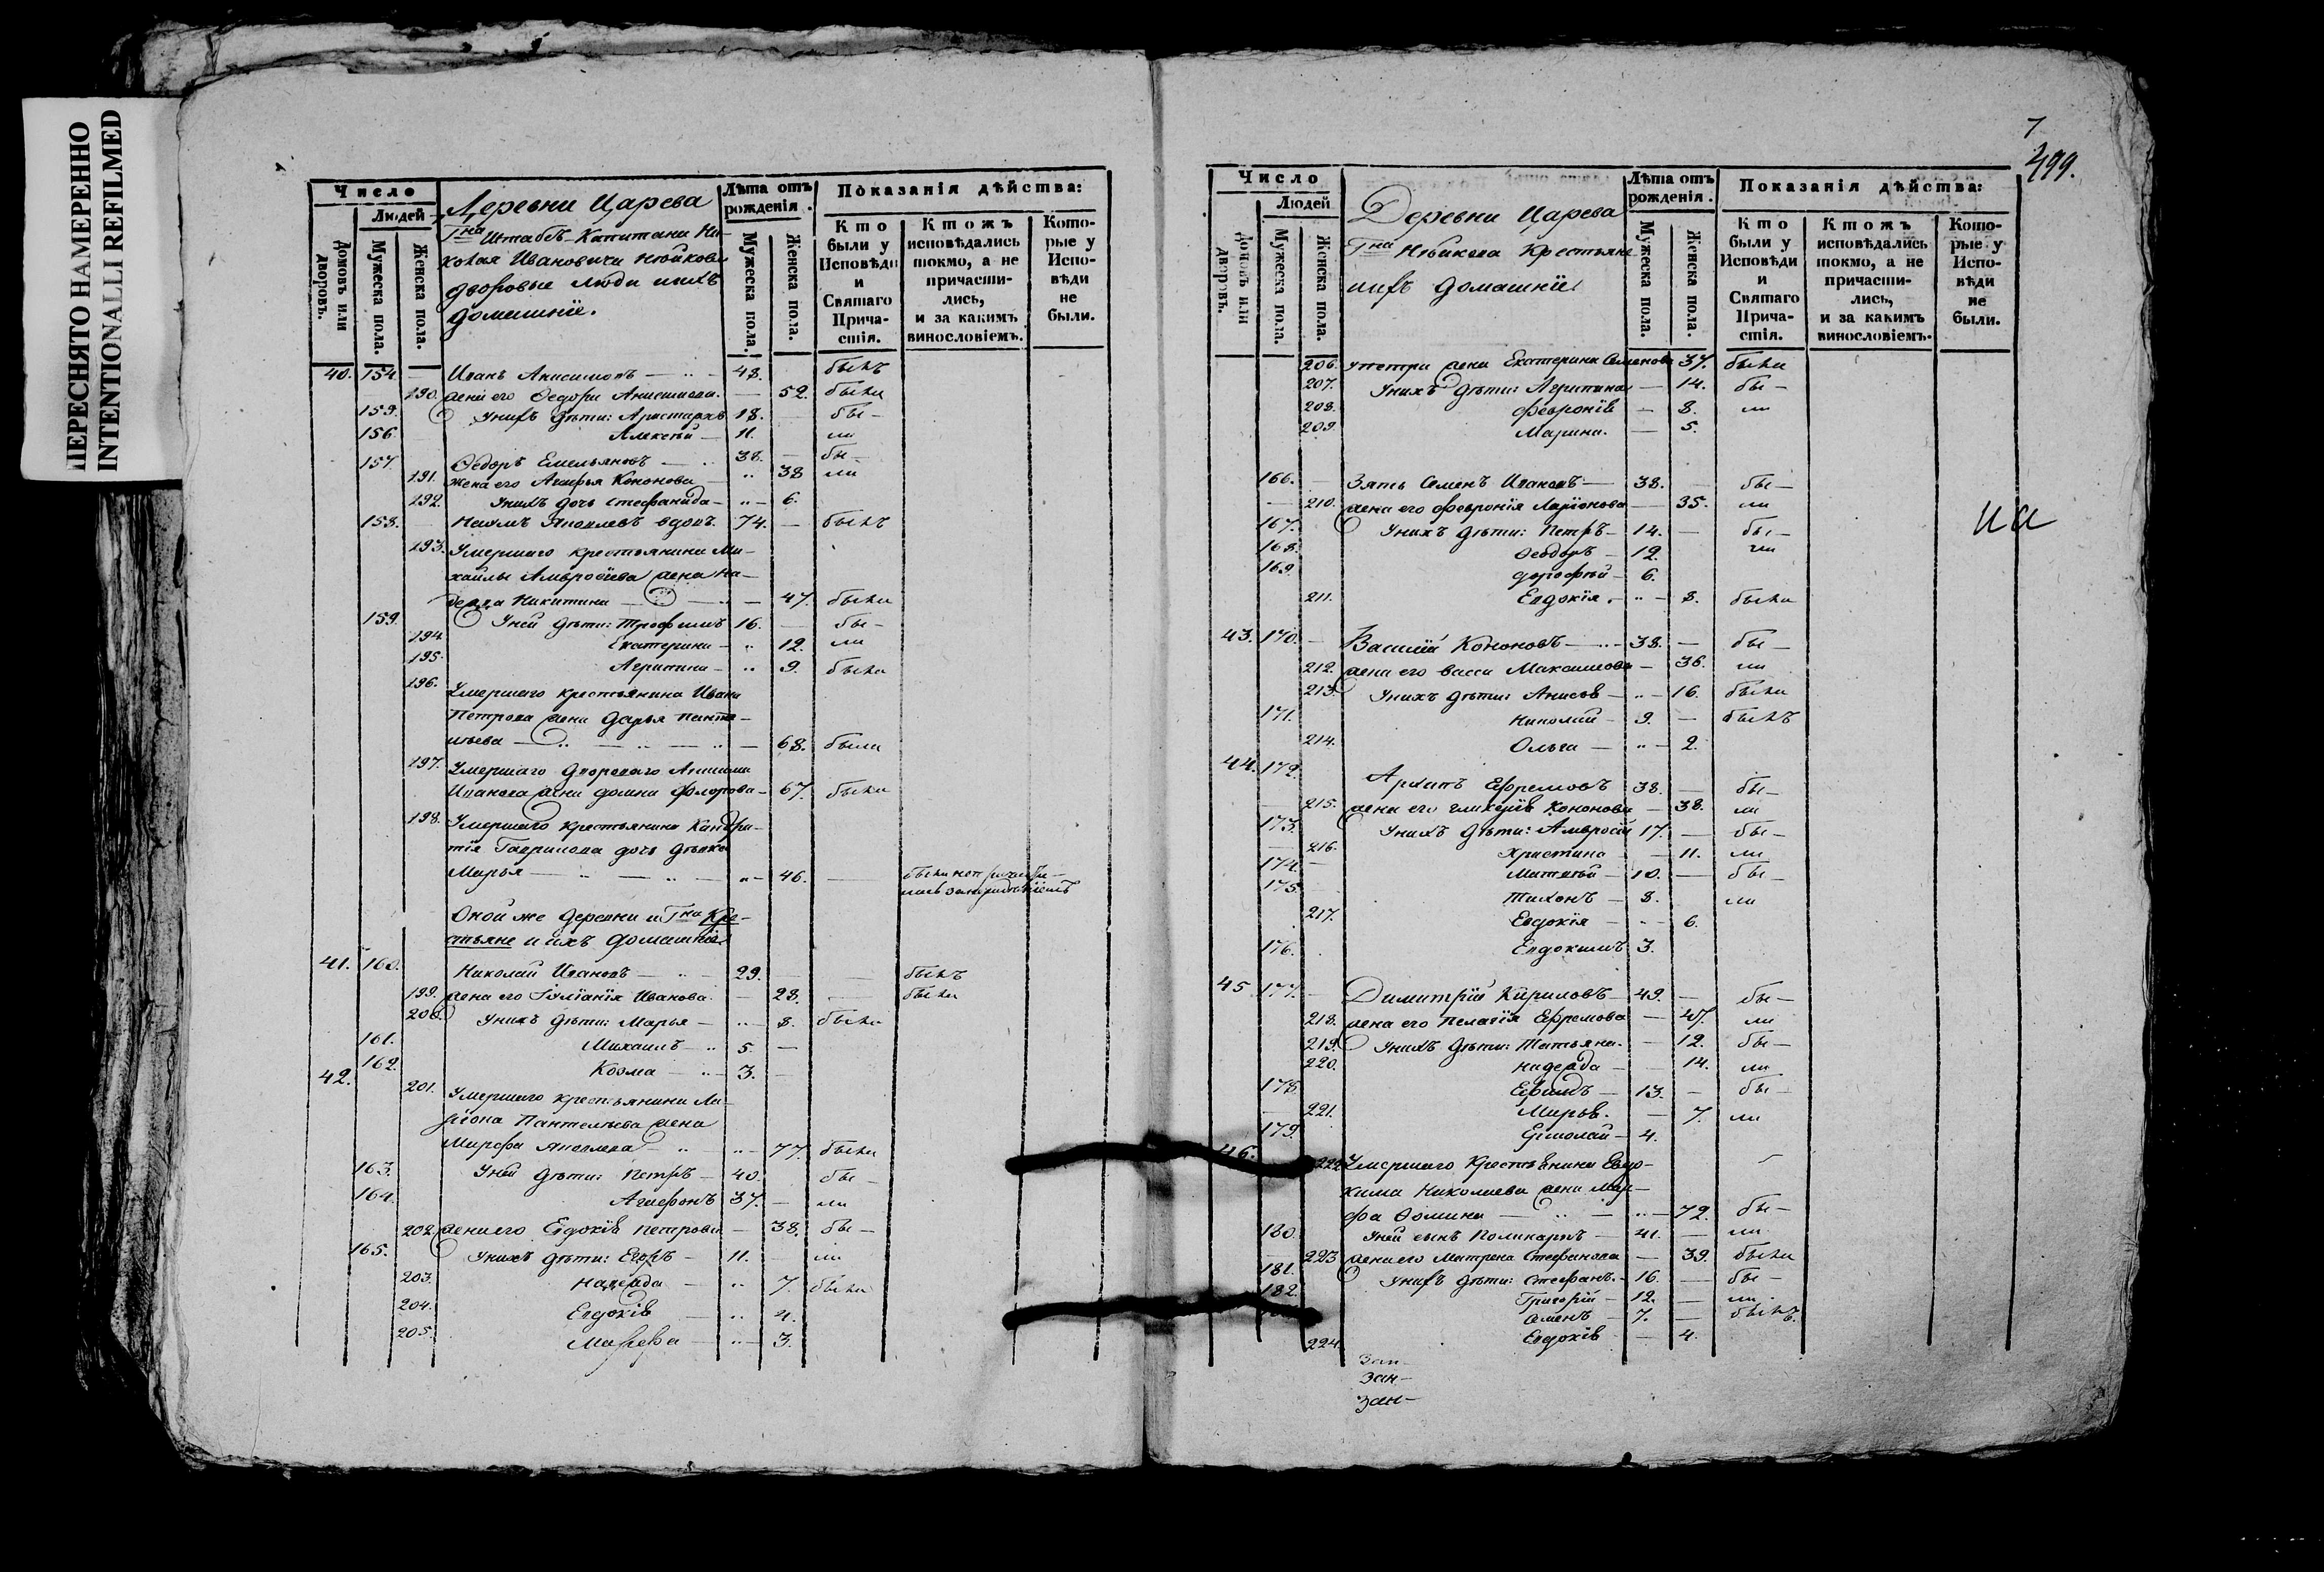 ПЕРЕСНЯТО НАМЕРЕННО
INTENTIONALLI REFILMED
Число
Людей
Домовъ или дворовъ.
Мужеска пола.
Женска пола.
Деревни Царева
Гна Штабъ-Капитана Ни-
колая Ивановича
дворовые люди ихъ
домашніе.
Лѣта отъ рожденія.
Мужеска пола.
Женска пола.
Показанія дѣйства:
Кто были у Исповѣди и Святаго Прича-стія.
Ктожъ исповѣдались токмо, а не причасти-лись, и за какимъ винословіемъ.
Кото-рые у Испо-вѣди не были.
40. 154. Иванъ Анисимовъ 48. былъ
190. жена его Ѳедора Анисимова 52. была
155. Унихъ дѣти: Аристархъ 18. бы-
156. Алексѣй 11. ли
157. Ѳедоръ Емельяновъ 38. бы-
191. жена его Агафья Кононова 38 ли
192. Унихъ дочь Стефанида 6.
158. Наумъ Яковлевъ вдовъ. 74. былъ
193. Умершаго крестьянина Ми-
хайлы Амвросіева жена На-
дежда Никитина 47. была
159. Уней дѣти: Трофимъ 16. бы-
194. Екатерина 12. ли
195. Агрипина 9. была
196. Умершаго крестьянина Ивана
Петрова жена Дарья Панте-
лѣева 68. была
197. Умершаго двороваго Анисима
Иванова жена Домна Флорова 67. была
198. Умершаго крестьянина Кандра-
тія Гаврилова дочь дѣвка
Марья 46.
Оной же деревни и Гна Кре-
стьяне и ихъ домашніе
41. 160. Николай Ивановъ 29. былъ
199. жена его Іуліанія Иванова 28. была
200. Унихъ дѣти: Марья 8. была
161. Михаилъ 5.
162. Козма 3.
42. 201. Умершаго крестьянина Ла-
ріона Пантелѣева жена
Марфа Яковлева 77. была
163. Уней дѣти: Петръ 40. бы-
164. Агафонъ 37. ли
202. жена его Евдокія Петрова 38. бы-
165. Унихъ дѣти: Егоръ 11. ли
203. Надежда 7. была
204. Евдокія 4.
205. Марфа 3.
7
499.
Число
Людей
Домовъ или дворовъ.
Мужеска пола.
Женска пола.
Деревни Царева
Гна Крестьяне
ихъ домашніе
Лѣта отъ рожденія.
Мужеска пола.
Женска пола.
Показанія дѣйства:
Кто были у Исповѣди и Святаго Прича-стія.
Ктожъ исповѣдались токмо, а не причасти-лись, и за какимъ винословіемъ.
Кото-рые у Испо-вѣди не были.
206. Упетра жена Екатерина Семенова 37. была
207. Унихъ дѣти: Агрипина 14. бы-
208. Февронія 8. ли
209. Марина. 5.
166. Зять Семенъ Ивановъ 38. бы-
210. жена его Февронія Ларіонова 35. ли
167. Унихъ дѣти: Петръ 14. бы-
168. Ѳеодоръ 12. ли
169. Дорофѣй 6.
211. Евдокія 8. была
43. 170. Василій Кононовъ 38. бы-
212. жена его Васса Максимова 36. ли
213. Унихъ дѣти: Анисья 16. была
171. Николай 9. былъ
214. Ольга 2.
44. 172. Архипъ Ефремовъ 38. бы-
215. жена его Гликерія Кононова 38. ли
173. Унихъ дѣти: Амвросій 17. бы-
216. Христина 11. ли
174. Матвѣй 10. бы-
175. Тихонъ 8. ли
217. Евдокія 6.
176. Евдокимъ 3.
45. 177. Димитрій Кириловъ 49. бы-
218. жена его Пелагія Ефремова 47. ли
219. Унихъ дѣти: Татьяна. 12. бы-
220. Надежда 14. ли
178. Ефимъ 13. бы-
221. Марья. 7. ли
179. Ермолай 4.
46. 222. Умершаго Крестьянина Евдо-
кима Николаева жена Мар-
фа Ѳомина 72. бы-
180. Уней сынъ Поликарпъ 41. ли
223 жена его Матрена Стефанова 39. была
181. Унихъ дѣти: Стефанъ 16. бы-
182. Григорій 12. ли
Семенъ 7. былъ
224. Евдокія 4.